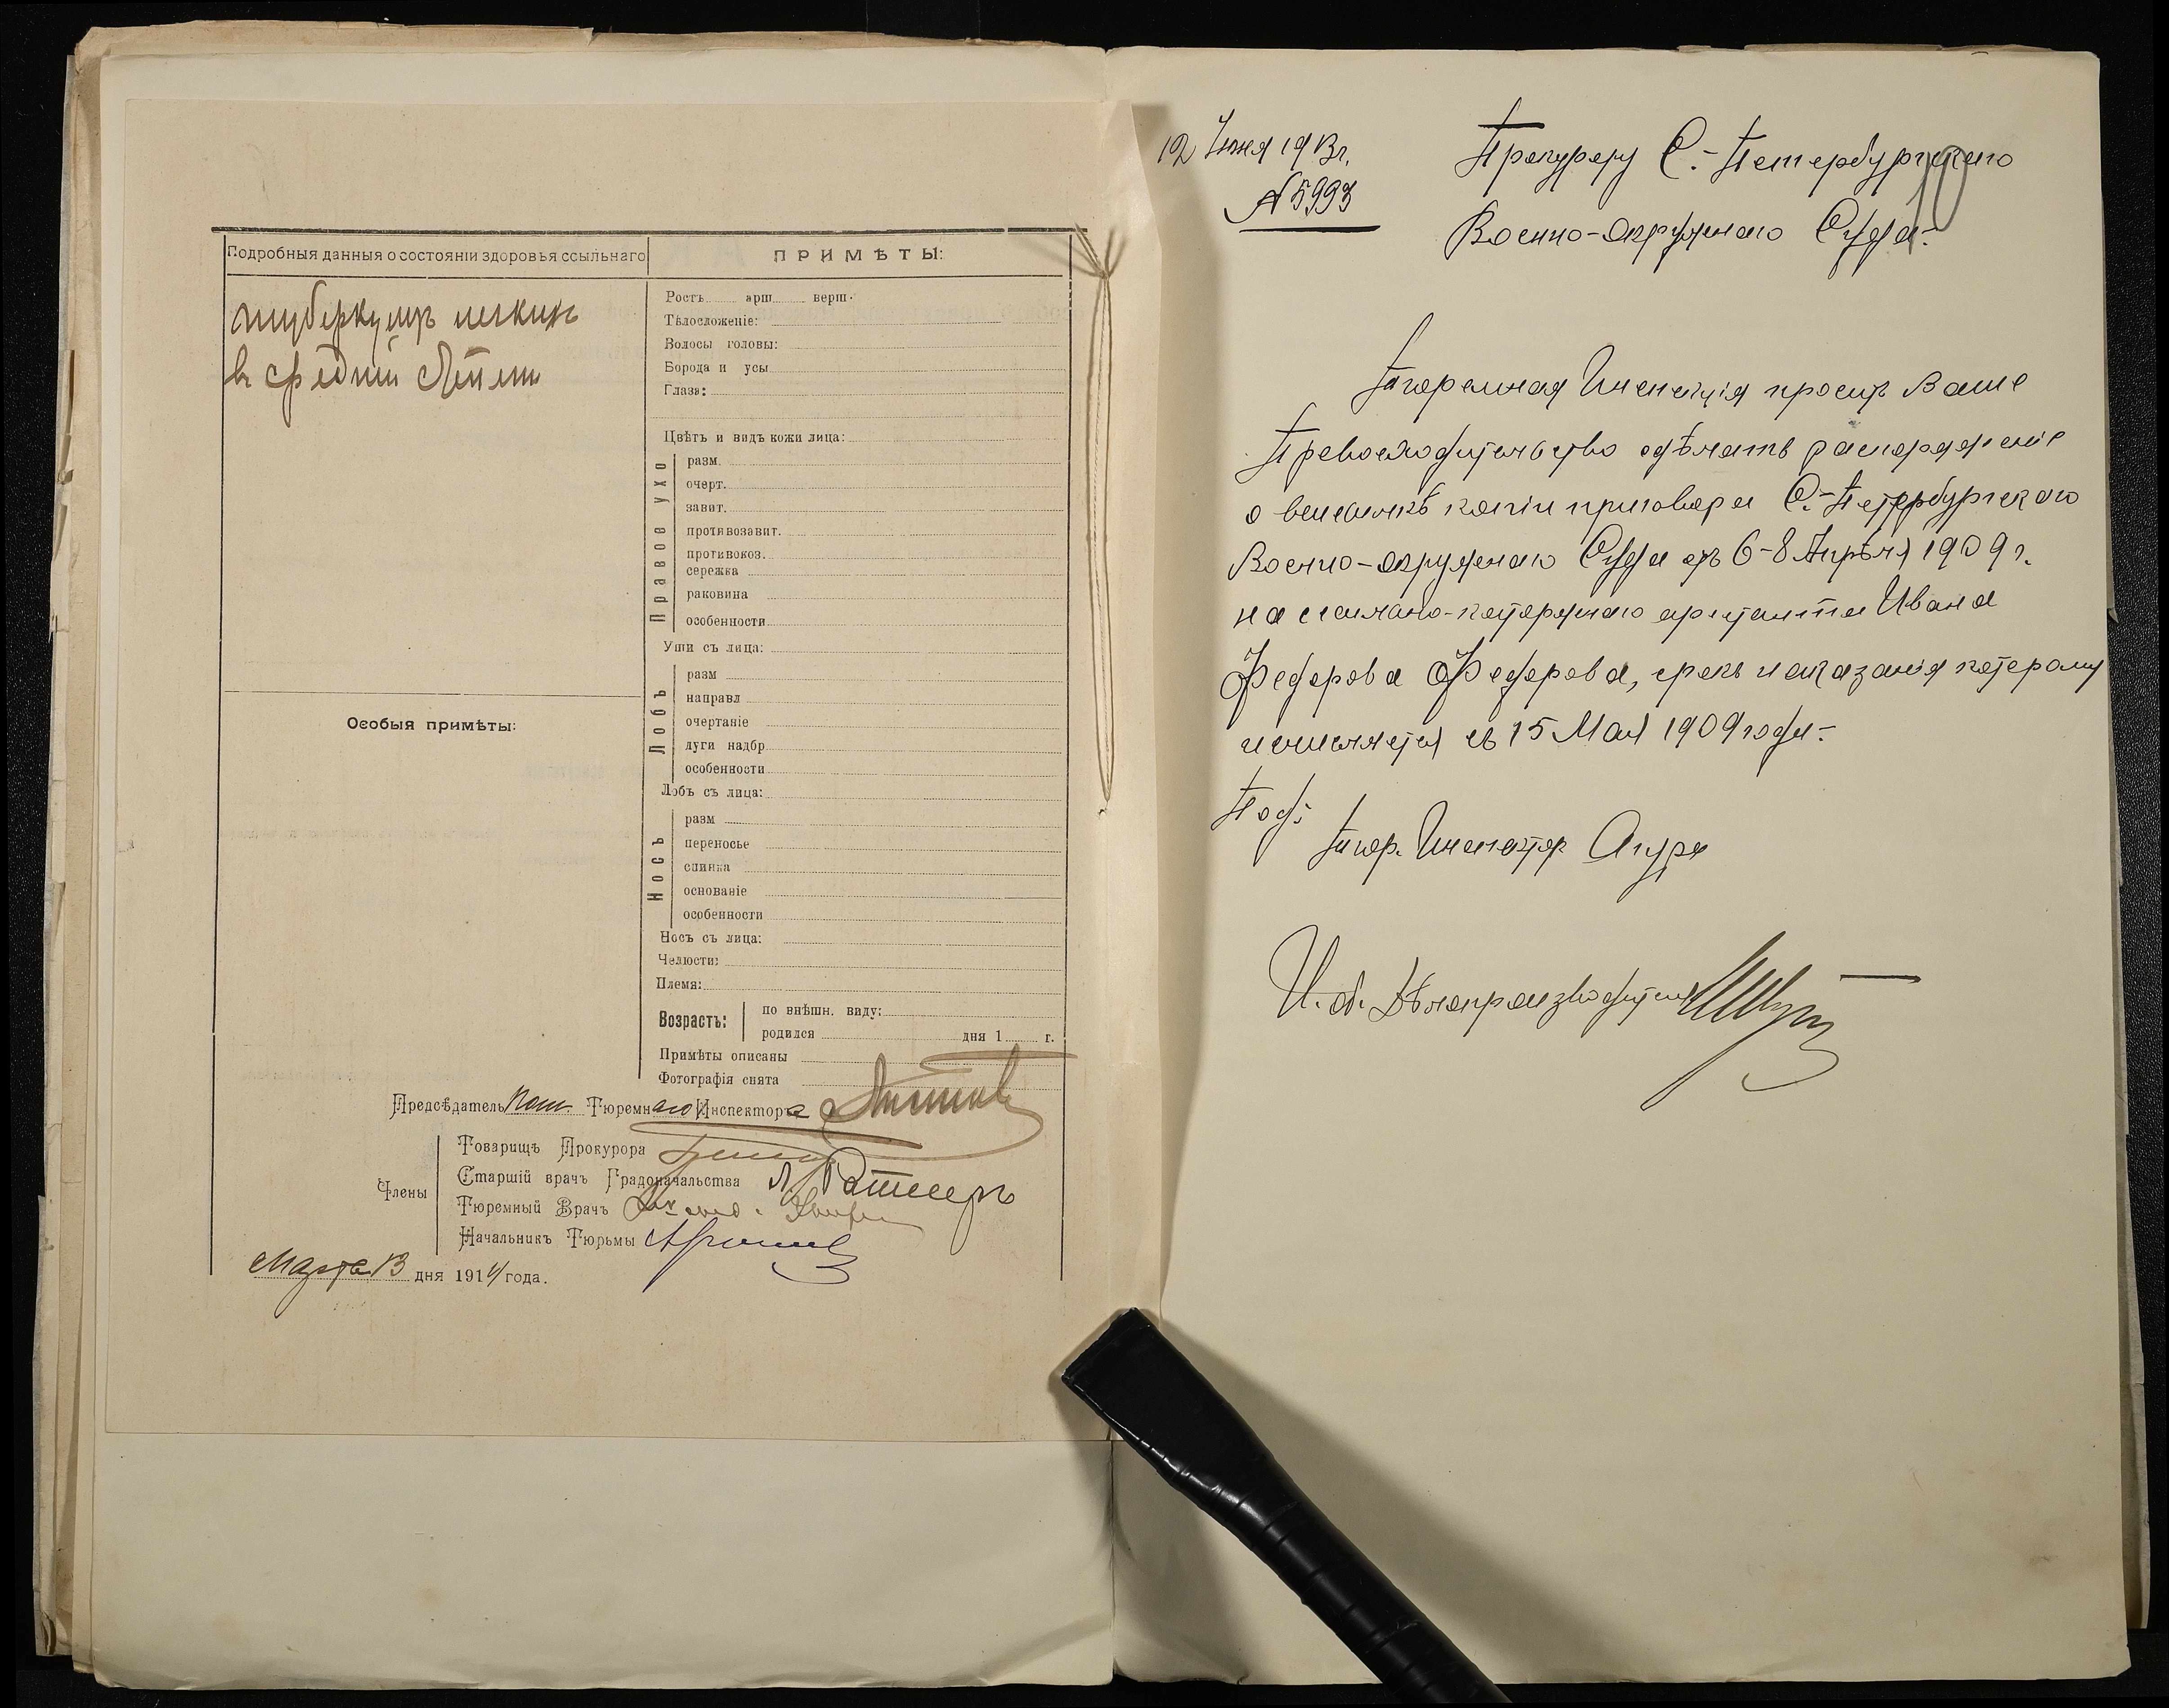 Подробныя данныя о состояніи здоровья ссыльнаго
туберкулезъ легкихъ
въ средней степени
Особыя примѣты:
ПРИМѢТЫ:
Ростъ арш. верш.
Тѣлосложеніе:
Волосы головы:
Борода и усы
Глаза:
Цвѣтъ и видъ кожи лица:
Правое ухо
разм.
очерт.
завит.
противозавит.
противокоз.
сережка
раковина
особенности
Уши съ лица:
Лобъ
разм
направл
очертаніе
дуги надбр
особенности
Лобъ съ лица:
Носъ
разм
переносье
спинка
основаніе
особенности
Носъ съ лица:
Челюсти:
Племя:
Возрастъ:
по внѣшн. виду:
родился дня 1 г.
Примѣты описаны
Фотографія снята
Предсѣдатель Пом. Тюремнаго Инспектора
Члены
Товарищъ Прокурора
Старшій врачъ Градоначальства
Тюремный Врачъ
Начальникъ Тюрьмы
Марта 13 дня 1914 года.
12 Іюня 1913 г.
№ 5993
10
Прокурору С.-Петербургскаго
Военно-Окружнаго Суда.
Тюремная Инспекція проситъ Ваше
Превосходительство сдѣлать распоряженіе
о высылкѣ копіи приговора С.-Петербургскаго
Военно-Окружнаго Суда отъ 6-8 Апрѣля 1909 г.
на ссыльно-каторжнаго арестанта Ивана
Федорова Федорова, срокъ наказанія которому
исчисляется съ 15 Мая 1909 года.
Подп:
Тюр. Инспекторъ
И. об. Дѣлопроизводителя